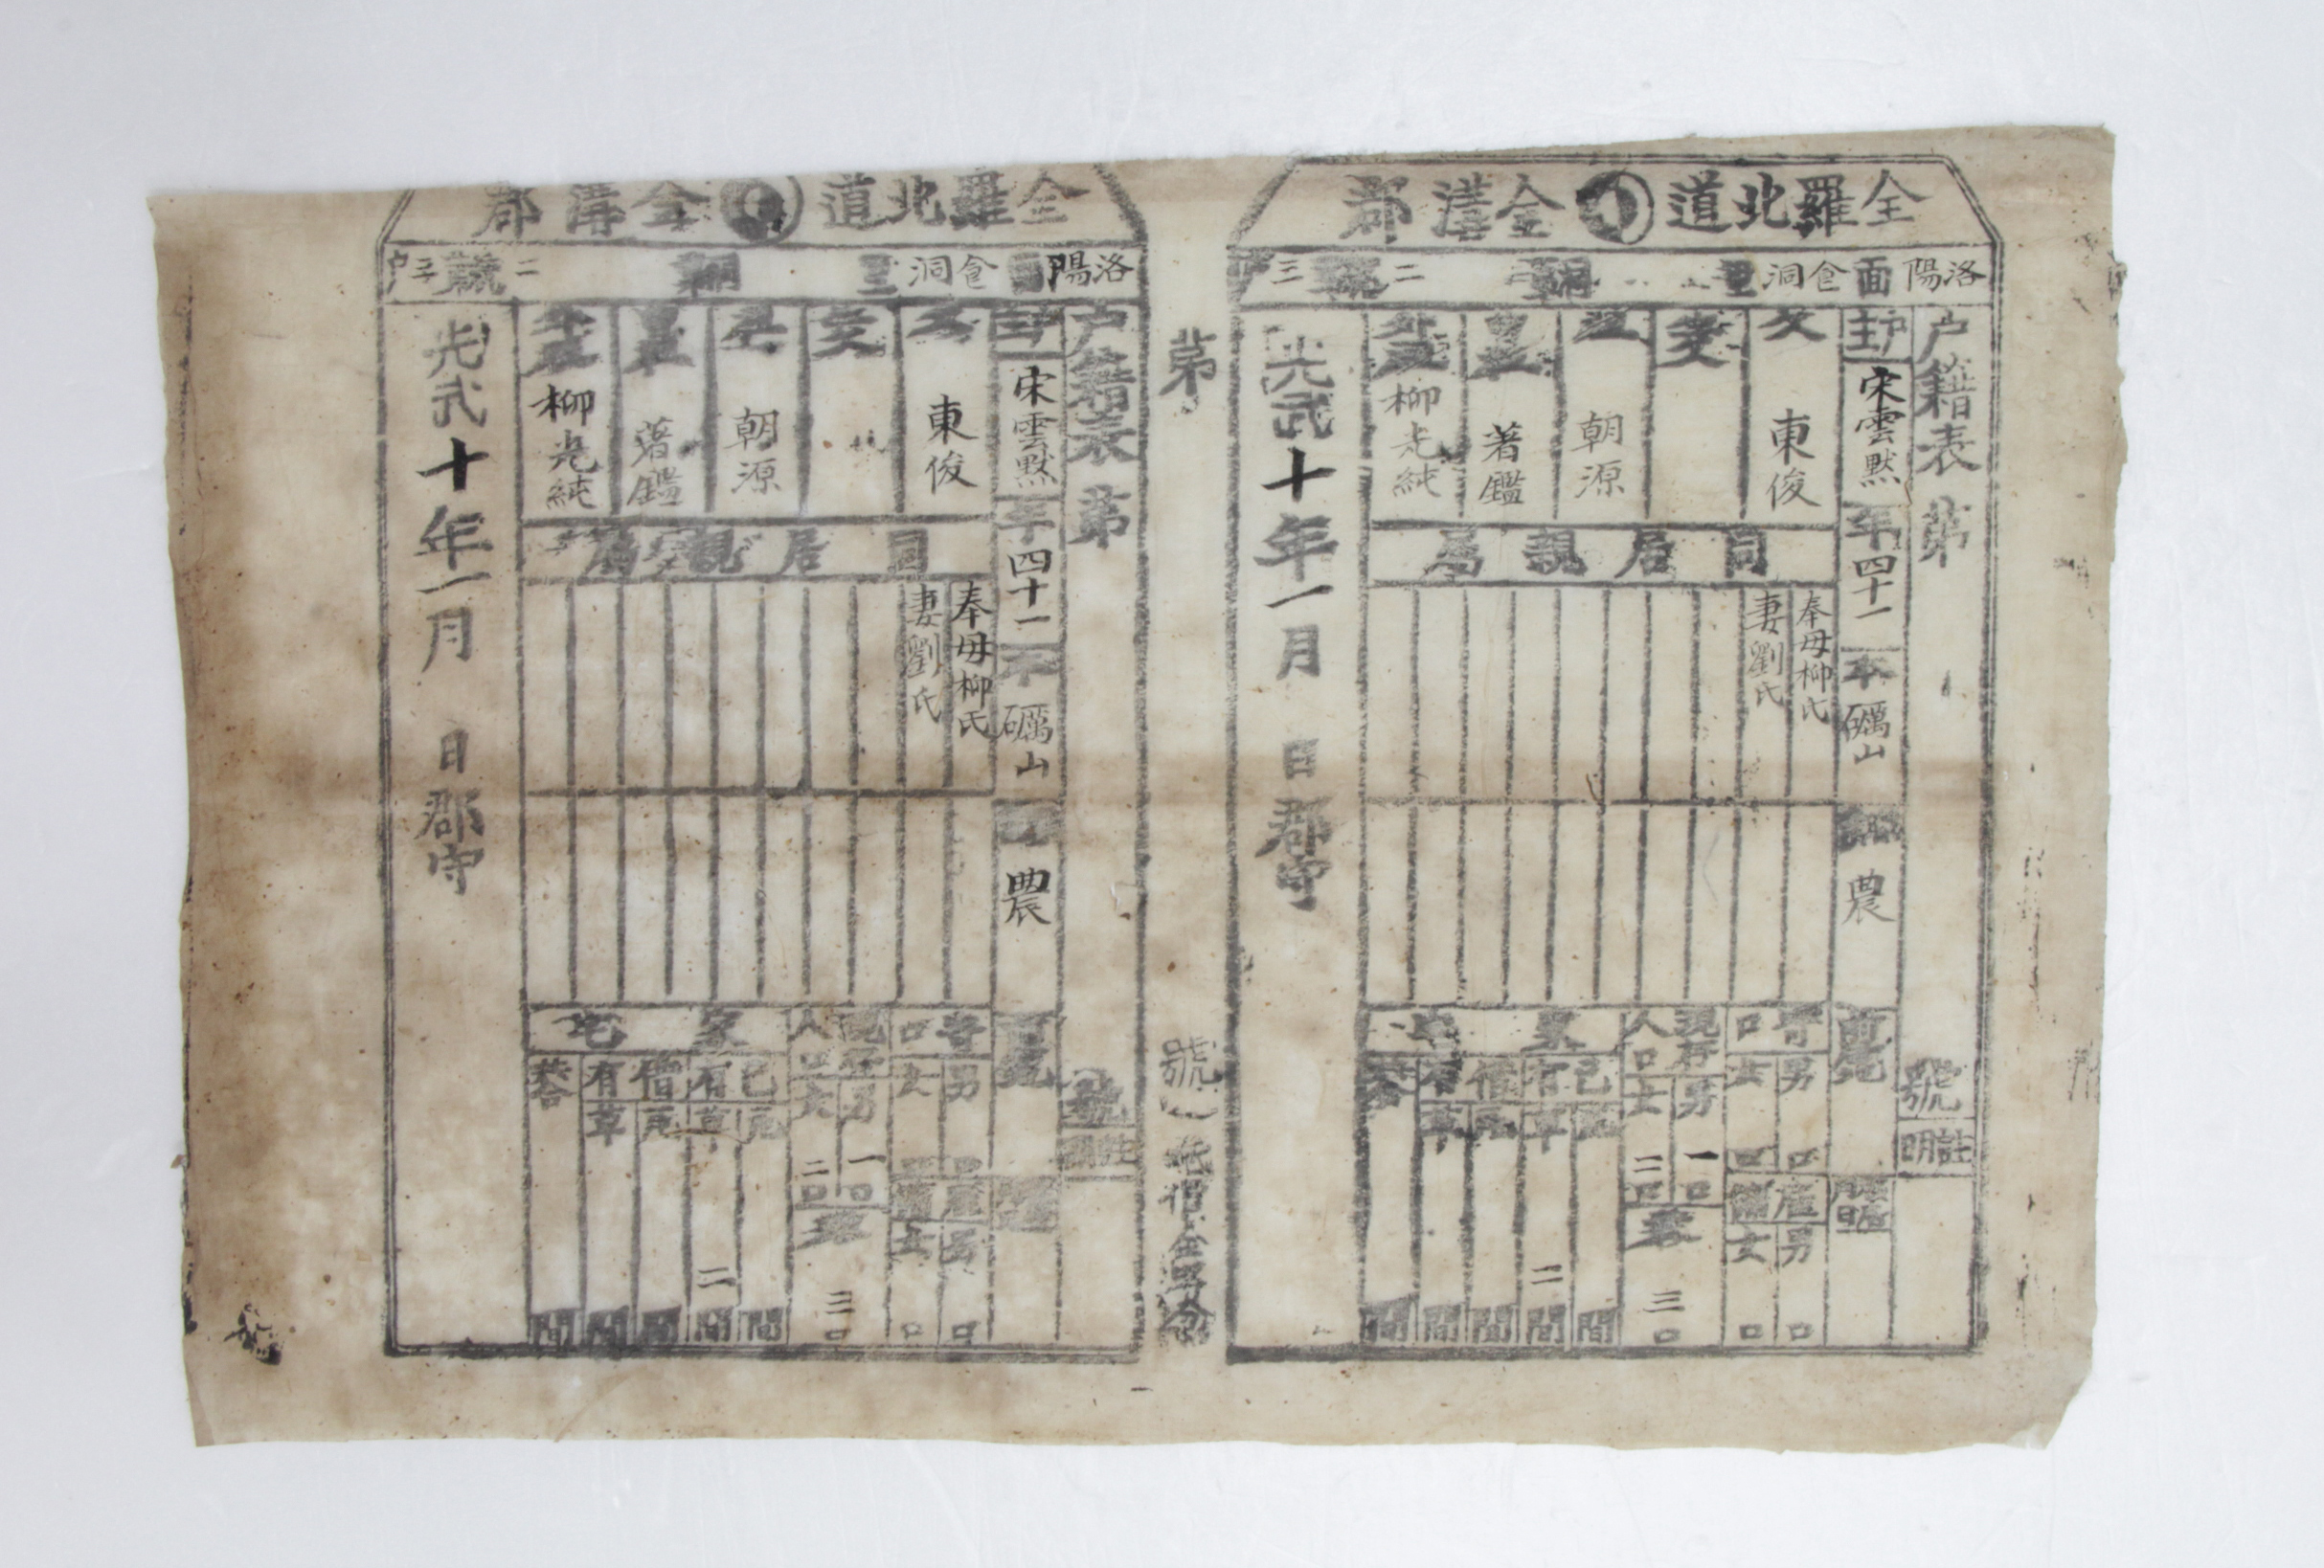 全羅北道 全溝郡
洛陽面 倉洞里 統 二統三戶
戶籍表 第 號
註明
戶主 宋雲黙 年 四十一 本 礪山 職 農 前居
父 東俊
祖 朝源
曾 著鑑
外祖 柳光純
同居親屬
奉母柳氏
妻劉氏
寄口 男 口 女 口
雇傭 男 口 女 口
現存人口 男 一口 女 二口
共 三口
家宅
己有 瓦 間 草 二間
借有 瓦 間 草 間
共合 間
光武十年一月 日 郡守
第 號
紙價金
全羅北道 全溝郡
洛陽面 倉洞里 統 二統三戶
戶籍表 第 號
戶主 宋雲黙 年 四十一 本 礪山 農
父 東俊
朝源
著鑑
外祖 柳光純
同居親屬
奉母柳氏
妻劉氏
寄口 男 女
男 口 女 口
現存人口 男 一口 女 二口
共 三口
家宅
己有 瓦 間 草 二間
借有 瓦 間 草 間
共合 間
光武十年一月 日 郡守